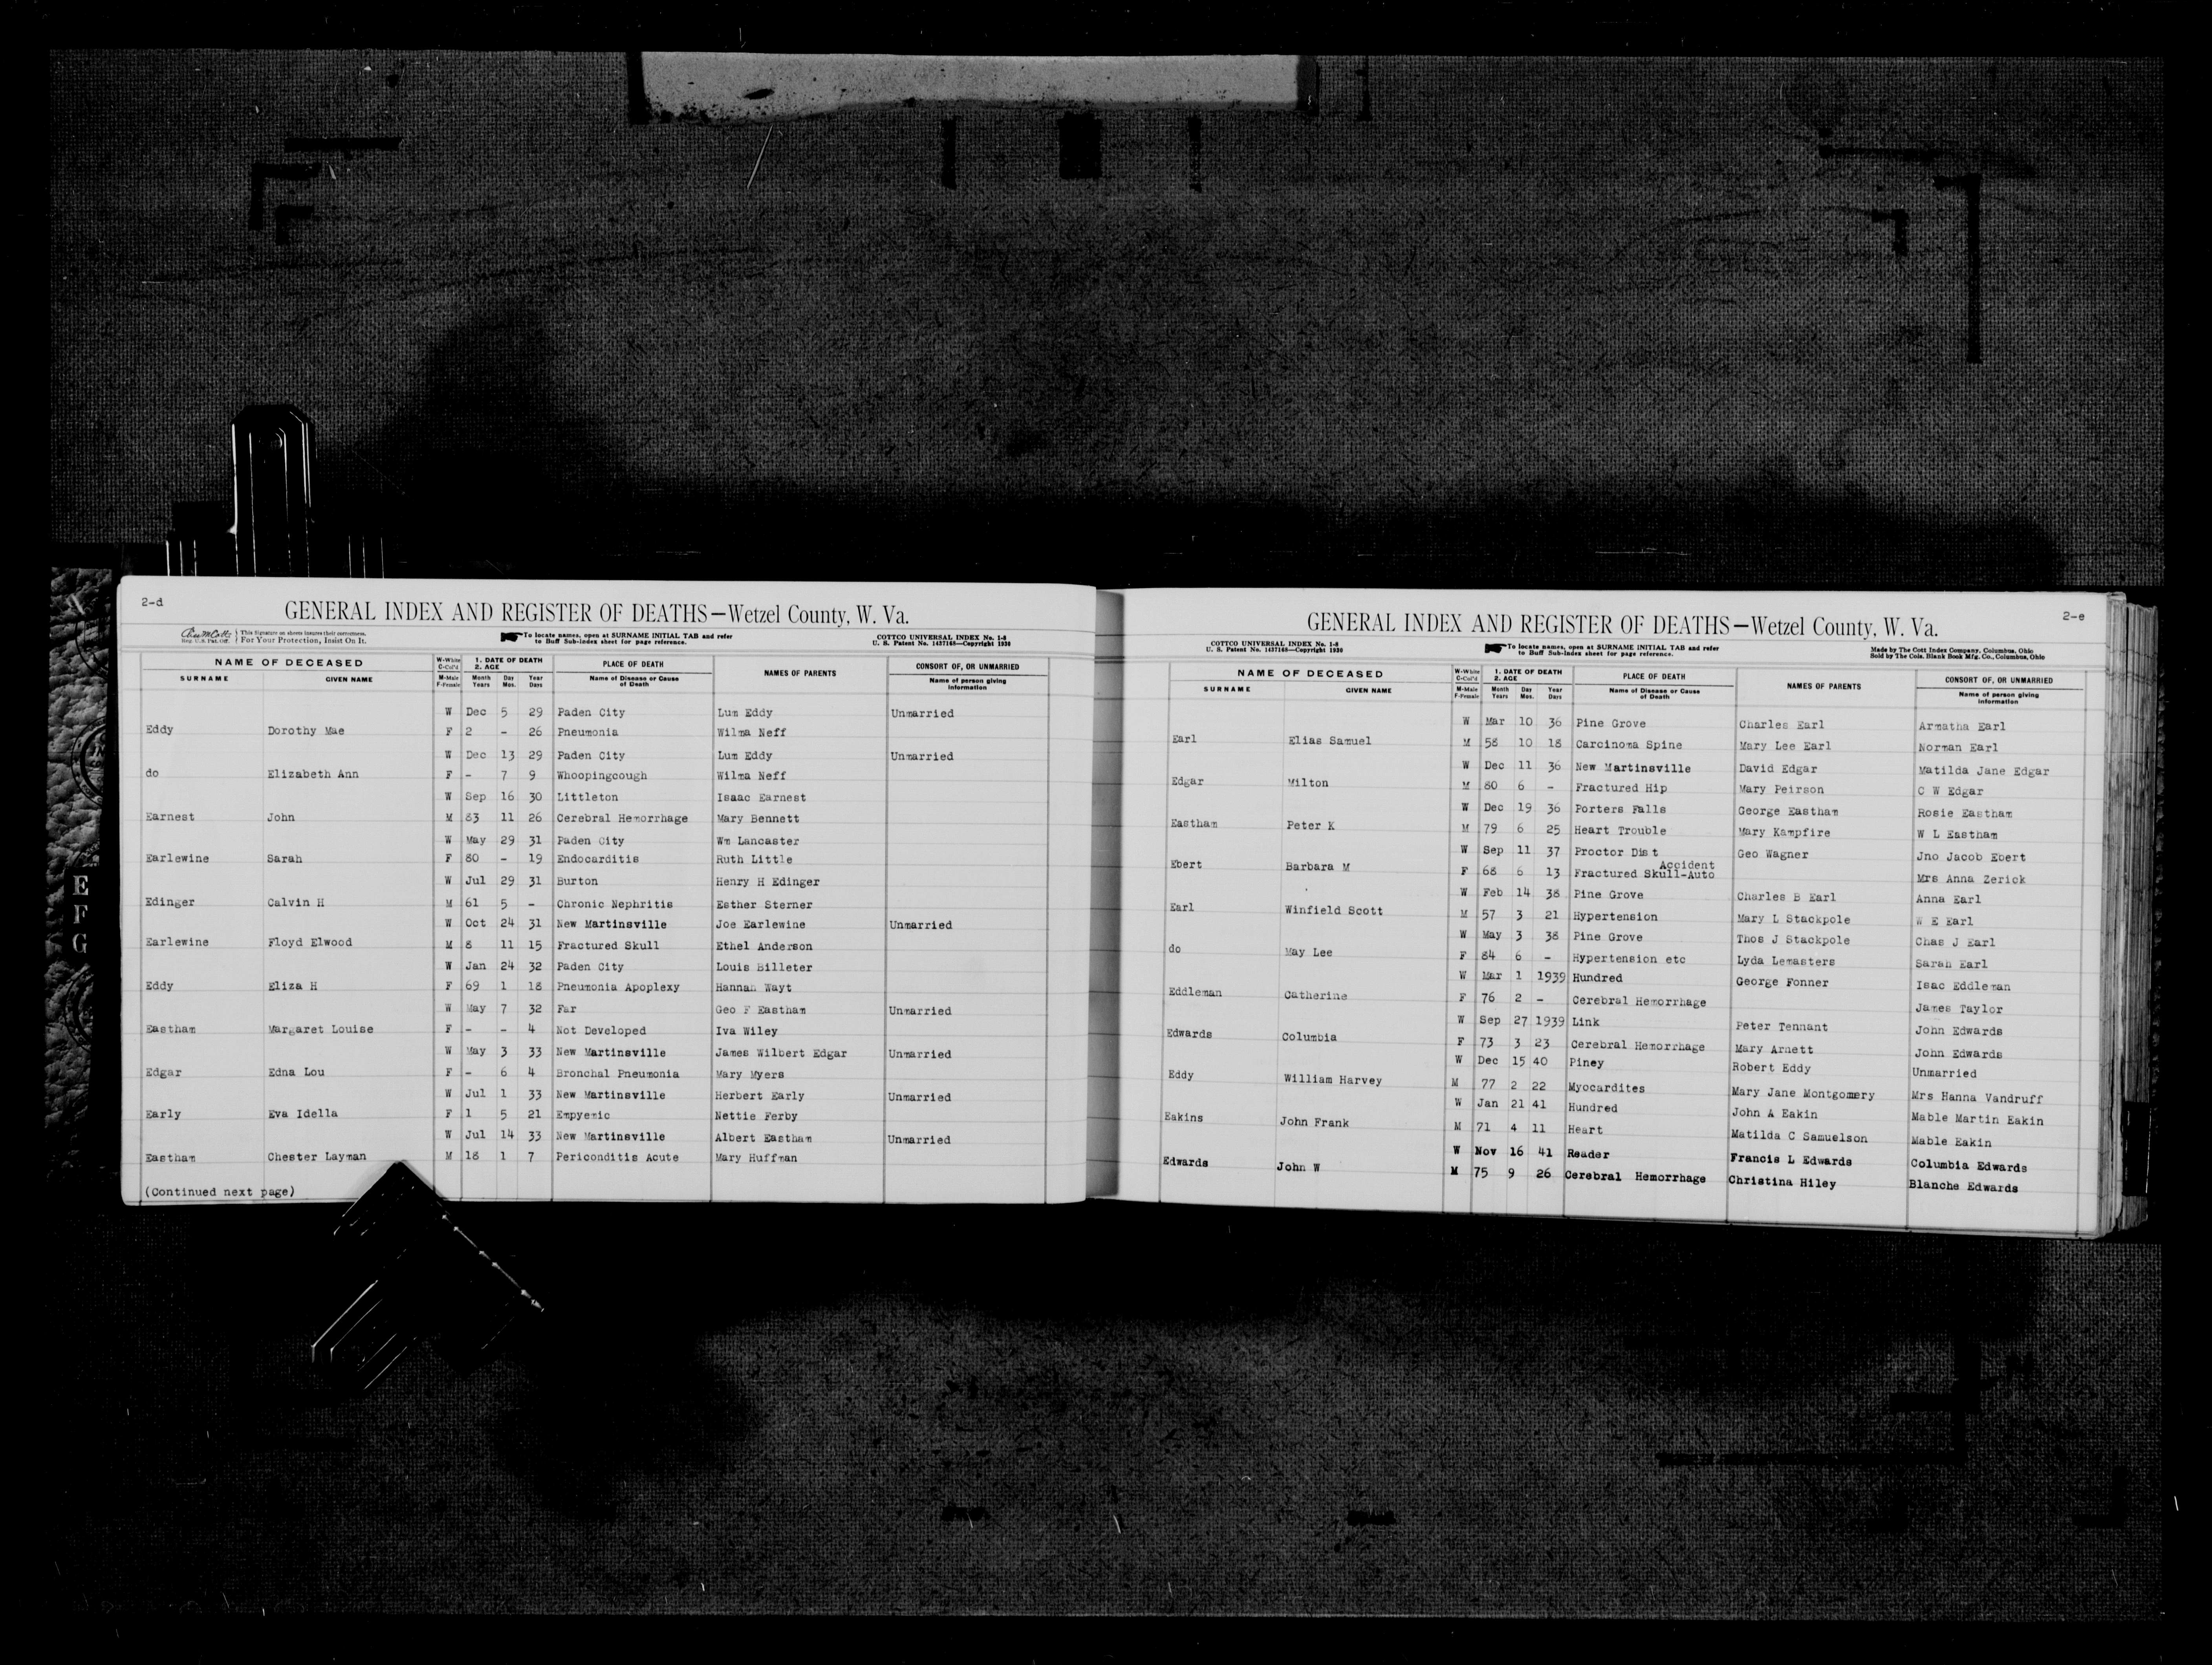 2-d
GENERAL INDEX AND REGISTER OF DEATHS—Wetzel County, W. Va.
Reg. U.S. Pat. Off. This Signature on sheets insures their correctness. For Your Protection, Insist On It.
To locate names, open at SURNAME INITIAL TAB and refer to Buff Sub-Index sheet for page reference.
COTTCO UNIVERSAL INDEX No. 1-8
U. S. Patent No. 1437168—Copyright 1930
NAME OF DECEASED W-White C-Col'd 1. DATE OF DEATH 2. AGE PLACE OF DEATH NAMES OF PARENTS CONSORT OF, OR UNMARRIED
SURNAME GIVEN NAME M-Male F-Female Month Years Day Mos. Year Days Name of Disease or Cause of Death Name of person giving information
W Dec 5 29 Paden City Lum Eddy Unmarried
Eddy Dorothy Mae F 2 - 26 Pneumonia Wilma Neff
W Dec 13 29 Paden City Lum Eddy Unmarried
do Elizabeth Ann F - 7 9 Whoopingcough Wilma Neff
W Sep 16 30 Littleton Isaac Earnest
Earnest John M 83 11 26 Cerebral Hemorrhage Mary Bennett
W May 29 31 Paden City Wm Lancaster
Earlewine Sarah F 80 - 19 Endocarditis Ruth Little
W Jul 29 31 Burton Henry H Edinger
Edinger Calvin H M 61 5 - Chronic Nephritis Esther Sterner
W Oct 24 31 New Martinsville Joe Earlewine Unmarried
Earlewine Floyd Elwood M 8 11 15 Fractured Skull Ethel Anderson
W Jan 24 32 Paden City Louis Billeter
Eddy Eliza H F 69 1 18 Pneumonia Apoplexy Hannah Wayt
W May 7 32 Far Geo F Eastham Unmarried
Eastham Margaret Louise F - - 4 Not Developed Iva Wiley
W May 3 33 New Martinsville James Wilbert Edgar Unmarried
Edgar Edna Lou F - 6 4 Bronchal Pneumonia Mary Myers
W Jul 1 33 New Martinsville Herbert Early Unmarried
Early Eva Idella F 1 5 21 Empyemic Nettie Ferby
W Jul 14 33 New Martinsville Albert Eastham Unmarried
Eastham Chester Layman M 18 1 7 Periconditis Acute Mary Huffman
(Continued next page)
E
F
G
2-e
GENERAL INDEX AND REGISTER OF DEATHS—Wetzel County, W. Va.
COTTCO UNIVERSAL INDEX No. 1-8
U. S. Patent No. 1437168—Copyright 1930
To locate names, open at SURNAME INITIAL TAB and refer to Buff Sub-Index sheet for page reference.
Made by The Cott Index Company, Columbus, Ohio
Sold by The Cols. Blank Book Mfg. Co., Columbus, Ohio
NAME OF DECEASED W-White C-Col'd 1. DATE OF DEATH 2. AGE PLACE OF DEATH NAMES OF PARENTS CONSORT OF, OR UNMARRIED
SURNAME GIVEN NAME M-Male F-Female Month Years Day Mos. Year Days Name of Disease or Cause of Death Name of person giving information
W Mar 10 36 Pine Grove Charles Earl Armatha Earl
Earl Elias Samuel M 58 10 18 Carcinoma Spine Mary Lee Earl Norman Earl
W Dec 11 36 New Martinsville David Edgar Matilda Jane Edgar
Edgar Milton M 80 6 - Fractured Hip Mary Peirson C W Edgar
W Dec 19 36 Porters Falls George Eastham Rosie Eastham
Eastham Peter K M 79 6 25 Heart Trouble Mary Kampfire W L Eastham
W Sep 11 37 Proctor Dist Geo Wagner Jno Jacob Ebert
Accident
Ebert Barbara M F 68 6 13 Fractured Skull-Auto Mrs Anna Zerick
W Feb 14 38 Pine Grove Charles B Earl Anna Earl
Earl Winfield Scott M 57 3 21 Hypertension Mary L Stackpole W E Earl
W May 3 38 Pine Grove Thos J Stackpole Chas J Earl
do May Lee F 84 6 - Hypertension etc Lyda Lemasters Sarah Earl
W Mar 1 1939 Hundred George Fonner Isac Eddleman
Eddleman Catherine F 76 2 - Cerebral Hemorrhage James Taylor
W Sep 27 1939 Link Peter Tennant John Edwards
Edwards Columbia F 73 3 23 Cerebral Hemorrhage Mary Arnett John Edwards
W Dec 15 40 Piney Robert Eddy Unmarried
Eddy William Harvey M 77 2 22 Myocardites Mary Jane Montgomery Mrs Hanna Vandruff
W Jan 21 41 Hundred John A Eakin Mable Martin Eakin
Eakins John Frank M 71 4 11 Heart Matilda C Samuelson Mable Eakin
W Nov 16 41 Reader Francis L Edwards Columbia Edwards
Edwards John W M 75 9 26 Cerebral Hemorrhage Christina Hiley Blanche Edwards